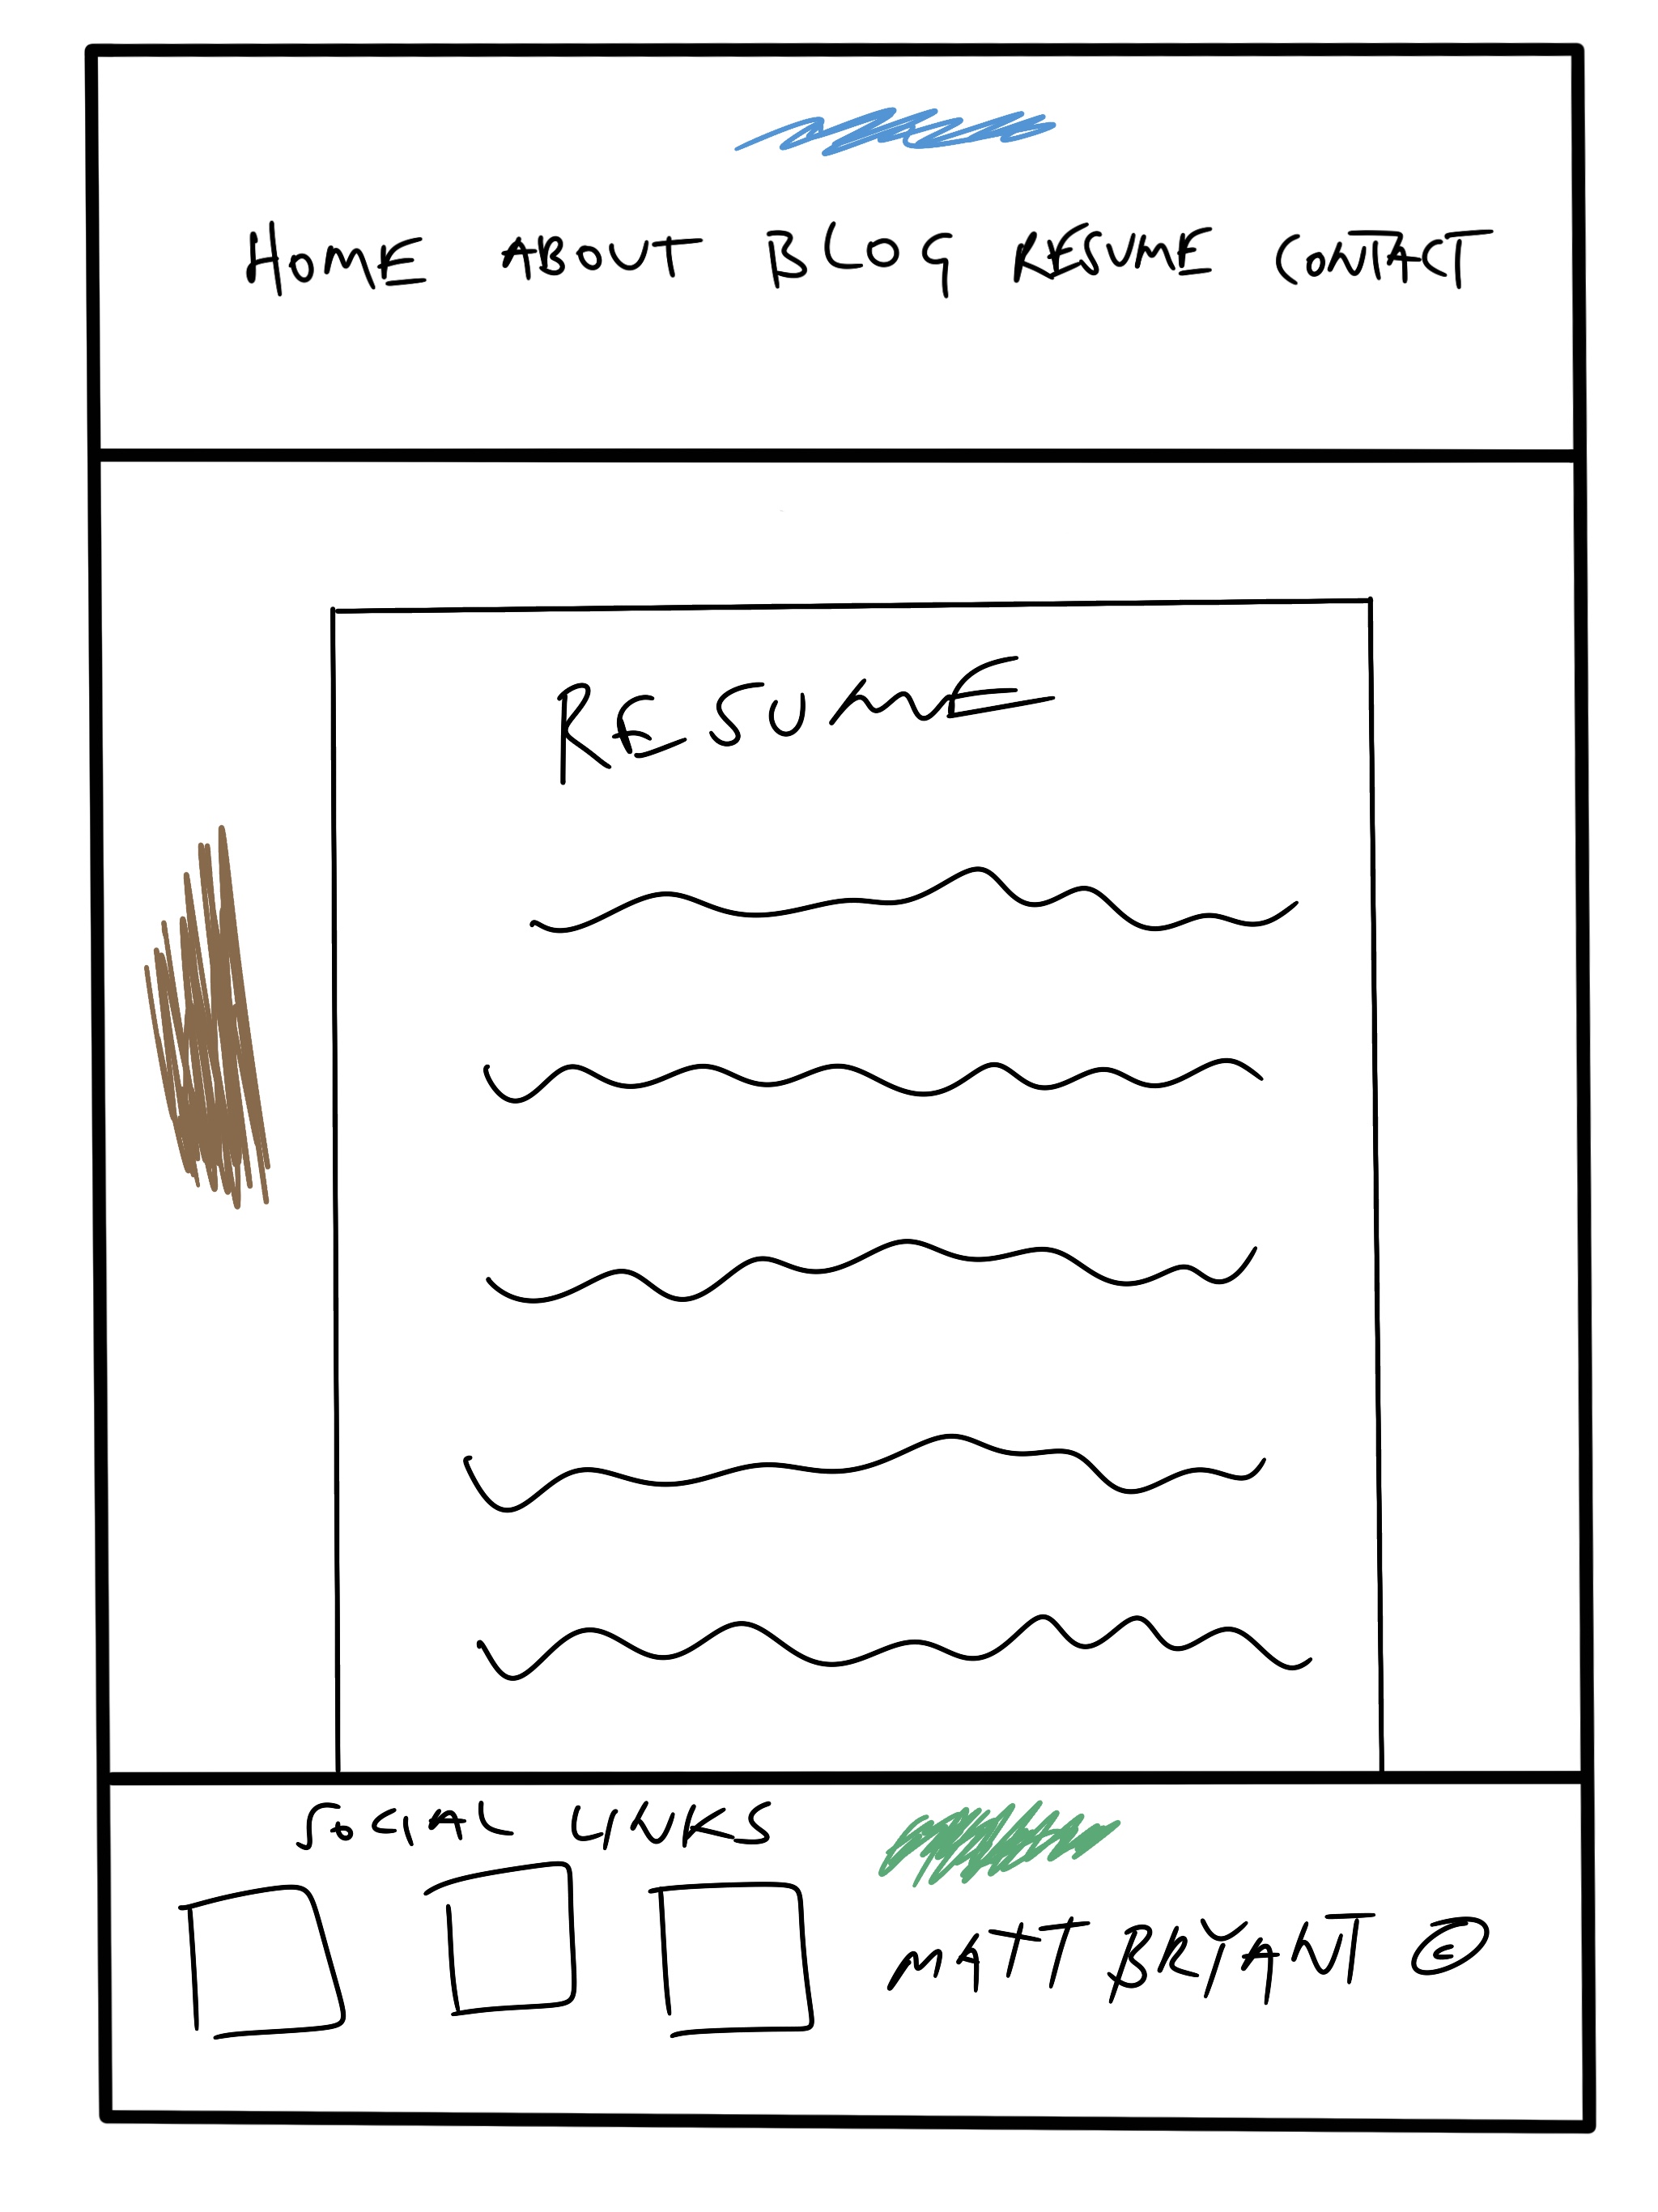 HOME ABOUT BLOG RESUME CONTACT
RESUME
SOCIAL LINKS
MATT BRYANT ©